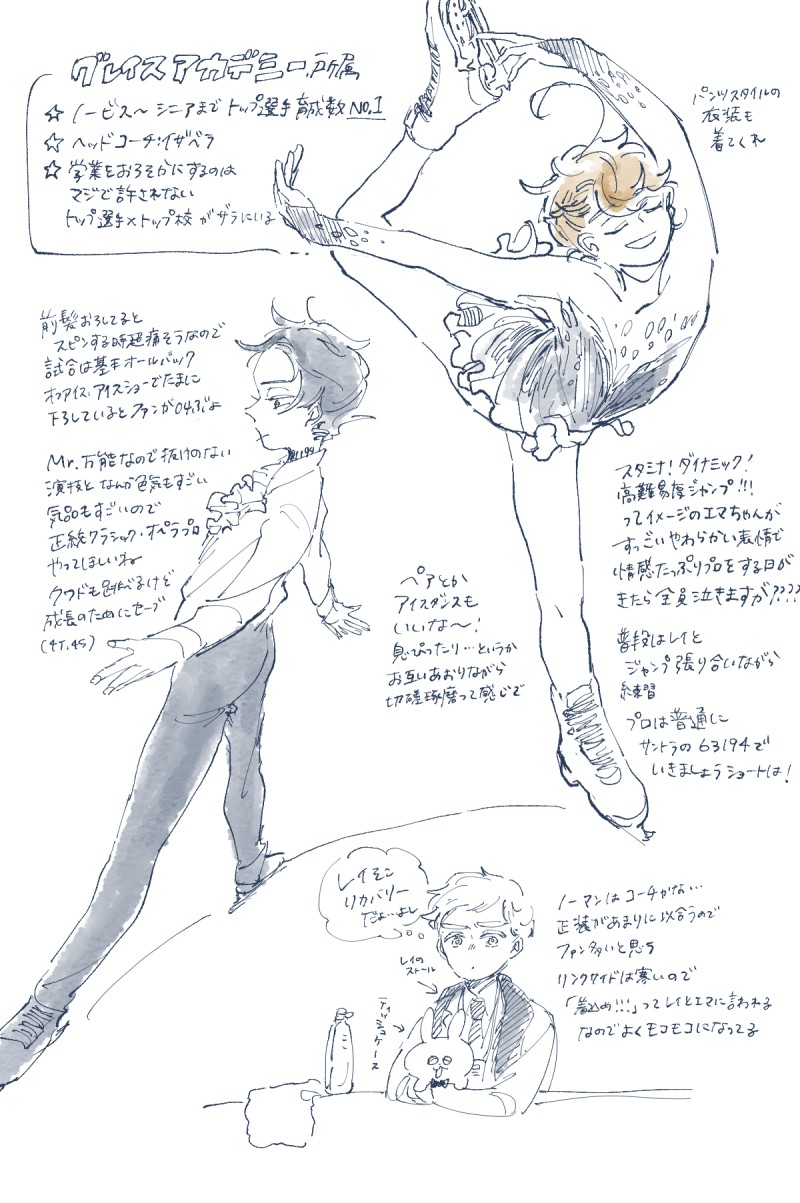 グレイスアカデミー所属
☆ ノービス〜シニアまでトップ選手育成数No.1
☆ ヘッドコーチ:イザベラ
☆ 学業をおろそかにするのは
マジで許されない
トップ選手×トップ校がザラにいる
パンツスタイルの
衣装も
着てくれ
前髪おろしてると
スピンする時超痛そうなので
試合は基本オールバック
オフアイス、アイスショーでたまに
下ろしているとファンが
Mr.万能なので抜けのない
演技となんか色気もすごい
気品もすごいので
正統クラシック・オペラプロ
やってほしいね
クワドも跳べるけど
成長のためにセーブ
(4T,4S)
81194
スタミナ!ダイナミック!
高難易度ジャンプ!!!
ってイメージのエマちゃんが
すっごいやわらかい表情で
情感たっぷりプロをする日が
きたら全員泣きますが????
普段はレイと
ジャンプ張り合いながら
練習
プロは普通に
サントラの63194で
いきましょうショートは!
ペアとか
アイスダンスも
いいな〜!
息ぴったり…というか
お互いあおりながら
切磋琢磨って感じで
レイそこ
リカバリー
だよ…よし
レイの
ストール
ティッシュケース
ノーマンはコーチかな…
正装があまりに似合うので
ファン多いと思う
リンクサイドは寒いので
「着込め!!!」ってレイとエマに言われる
なのでよくモコモコになってる